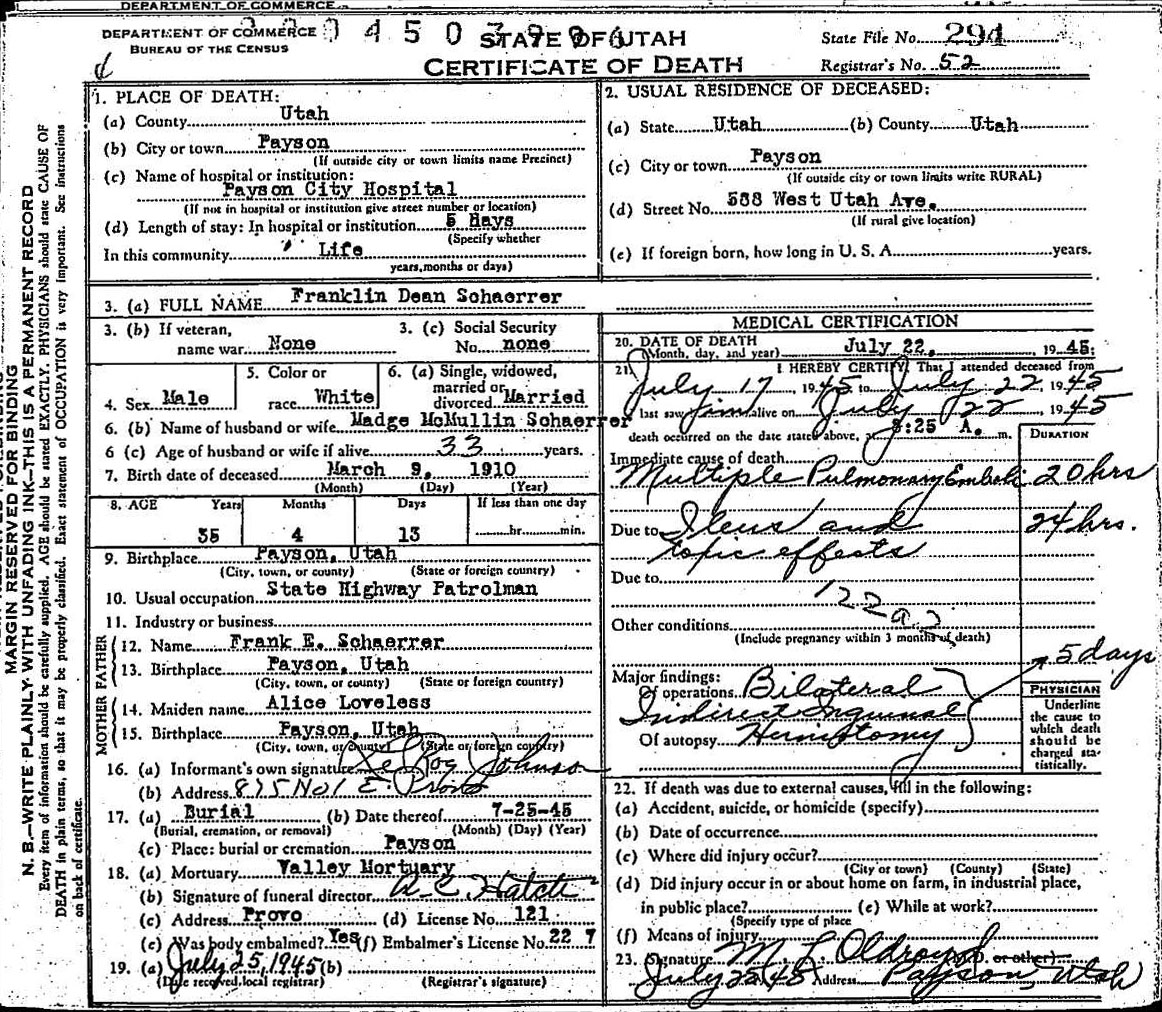 DEPARTMENT OF COMMERCE
DEPARTMENT OF COMMERCE
BUREAU OF THE CENSUS
STATE OF UTAH
CERTIFICATE OF DEATH
State File No. 294
Registrar's No. 52
MARGIN RESERVED FOR BINDING
N. B.—WRITE PLAINLY WITH UNFADING INK—THIS IS A PERMANENT RECORD
Every item of information should be carefully supplied. AGE should be stated EXACTLY. PHYSICIANS should state CAUSE OF
DEATH in plain terms, so that it may be properly classified. Exact statement of OCCUPATION is very important. See instructions
on back of certificate.
1. PLACE OF DEATH:
(a) County Utah
(b) City or town Payson
(If outside city or town limits name Precinct)
(c) Name of hospital or institution:
Payson City Hospital
(If not in hospital or institution give street number or location)
(d) Length of stay: In hospital or institution 5 days
(Specify whether
In this community Life
years, months or days)
2. USUAL RESIDENCE OF DECEASED:
(a) State Utah (b) County Utah
(c) City or town Payson
(If outside city or town limits write RURAL)
(d) Street No. 538 West Utah Ave.
(If rural give location)
(e) If foreign born, how long in U. S. A. years.
3. (a) FULL NAME Franklin Dean Schaerrer
3. (b) If veteran,
name war None
3. (c) Social Security
No. none
4. Sex Male
5. Color or
race White
6. (a) Single, widowed,
married or
divorced Married
6. (b) Name of husband or wife Madge McMullin Schaerrer
6 (c) Age of husband or wife if alive 33 years.
7. Birth date of deceased March 9, 1910
(Month) (Day) (Year)
8. AGE Years Months Days If less than one day
35 4 13 hr. min.
9. Birthplace Payson, Utah
(City, town, or county) (State or foreign country)
10. Usual occupation State Highway Patrolman
11. Industry or business
FATHER
12. Name Frank E. Schaerrer
13. Birthplace Payson, Utah
(City, town, or county) (State or foreign country)
MOTHER
14. Maiden name Alice Loveless
15. Birthplace Payson, Utah
(City, town, or county) (State or foreign country)
16. (a) Informant's own signature LeRoy Johnson
(b) Address 875 No 1 E. Provo
17. (a) Burial (b) Date thereof 7-25-45
(Burial, cremation, or removal) (Month) (Day) (Year)
(c) Place: burial or cremation Payson
18. (a) Mortuary Valley Mortuary
(b) Signature of funeral director
(c) Address Provo (d) License No. 121
(e) Was body embalmed? Yes (f) Embalmer's License No. 22 7
19. (a) July 25, 1945 (b)
(Date received local registrar) (Registrar's signature)
MEDICAL CERTIFICATION
20. DATE OF DEATH
(Month, day, and year) July 22, 1945:
21. I HEREBY CERTIFY, That I attended deceased from
July 17, 1945 to July 22, 1945
last saw him alive on July 22, 1945
death occurred on the date stated above, 8:25 A. m.
DURATION
Immediate cause of death
Multiple Pulmonary Emboli 20 hrs
Due to Ileus and 24 hrs.
toxic effects
Due to
122a
Other conditions
(Include pregnancy within 3 months of death)
5 days
Major findings:
Of operations Bilateral
Indirect Inguinal
Of autopsy Herniotomy
PHYSICIAN
Underline
the cause to
which death
should be
charged sta-
tistically.
22. If death was due to external causes, fill in the following:
(a) Accident, suicide, or homicide (specify)
(b) Date of occurrence
(c) Where did injury occur?
(City or town) (County) (State)
(d) Did injury occur in or about home on farm, in industrial place,
in public place? (e) While at work?
(Specify type of place
(f) Means of injury
23. Signature M L Oldroyd (M.D. or other)
July 25 45 Address Payson, Utah